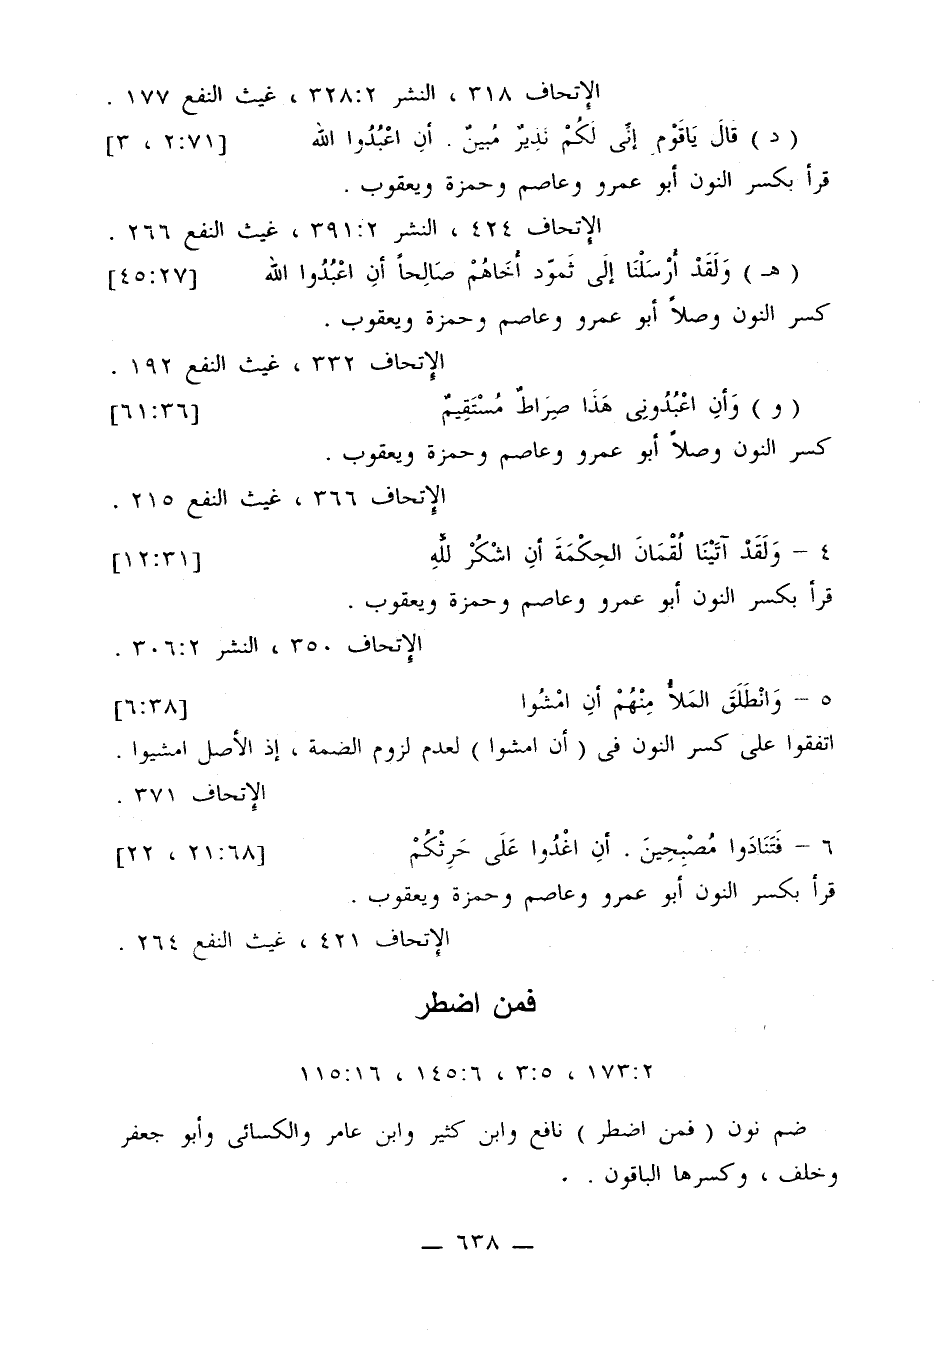 الإتحاف ٣١٨ ، النشر ٣٢٨:٢ ، غيث النفع ١٧٧ .
( د ) قالَ يَاقَوْمِ إنِّى لَكُمْ نَذِيرٌ مُبينٌ . أنِ اعْبُدُوا الله [٢:٧١ ، ٣]
قرأ بكسر النون أبو عمرو وعاصم وحمزة ويعقوب .
الإتحاف ٤٢٤ ، النشر ٣٩١:٢ ، غيث النفع ٢٦٦ .
( هـ ) وَلَقَدْ أرْسَلْنَا إلَى ثَموّد أخَاهُمْ صَالِحاً أنِ اعْبُدُوا الله [٤٥:٢٧]
كسر النون وصلاً أبو عمرو وعاصم وحمزة ويعقوب .
الإتحاف ٣٣٢ ، غيث النفع ١٩٢ .
( و ) وَأنِ اعْبُدُونِى هَذَا صِرَاطٌ مُسْتَقِيمٌ [٦١:٣٦]
كسر النون وصلاً أبو عمرو وعاصم وحمزة ويعقوب .
الإتحاف ٣٦٦ ، غيث النفع ٢١٥ .
٤ – وَلَقَدْ آتَيْنَا لُقْمَانَ الحِكْمَةَ أنِ اشْكُرْ للهِ [١٢:٣١]
قرأ بكسر النون أبو عمرو وعاصم وحمزة ويعقوب .
الإتحاف ٣٥٠ ، النشر ٣٠٦:٢ .
٥ – وَانْطَلَقَ المَلأُ مِنْهُمْ أنِ امْشُوا [٦:٣٨]
اتفقوا على كسر النون فى ( أن امشوا ) لعدم لزوم الضمة ، إذ الأصل امشيوا .
الإتحاف ٣٧١ .
٦ – فَتَنَادَوا مُصْبِحِينَ . أنِ اغْدُوا عَلَى حَرِثْكُمْ [٢١:٦٨ ، ٢٢]
قرأ بكسر النون أبو عمرو وعاصم وحمزة ويعقوب .
الإتحاف ٤٢١ ، غيث النفع ٢٦٤ .
فمن اضطر
١٧٣:٢ ، ٣:٥ ، ١٤٥:٦ ، ١١٥:١٦
ضم نون ( فمن اضطر ) نافع وابن كثير وابن عامر والكسائى وأبو جعفر
وخلف ، وكسرها الباقون .
— ٦٣٨ —